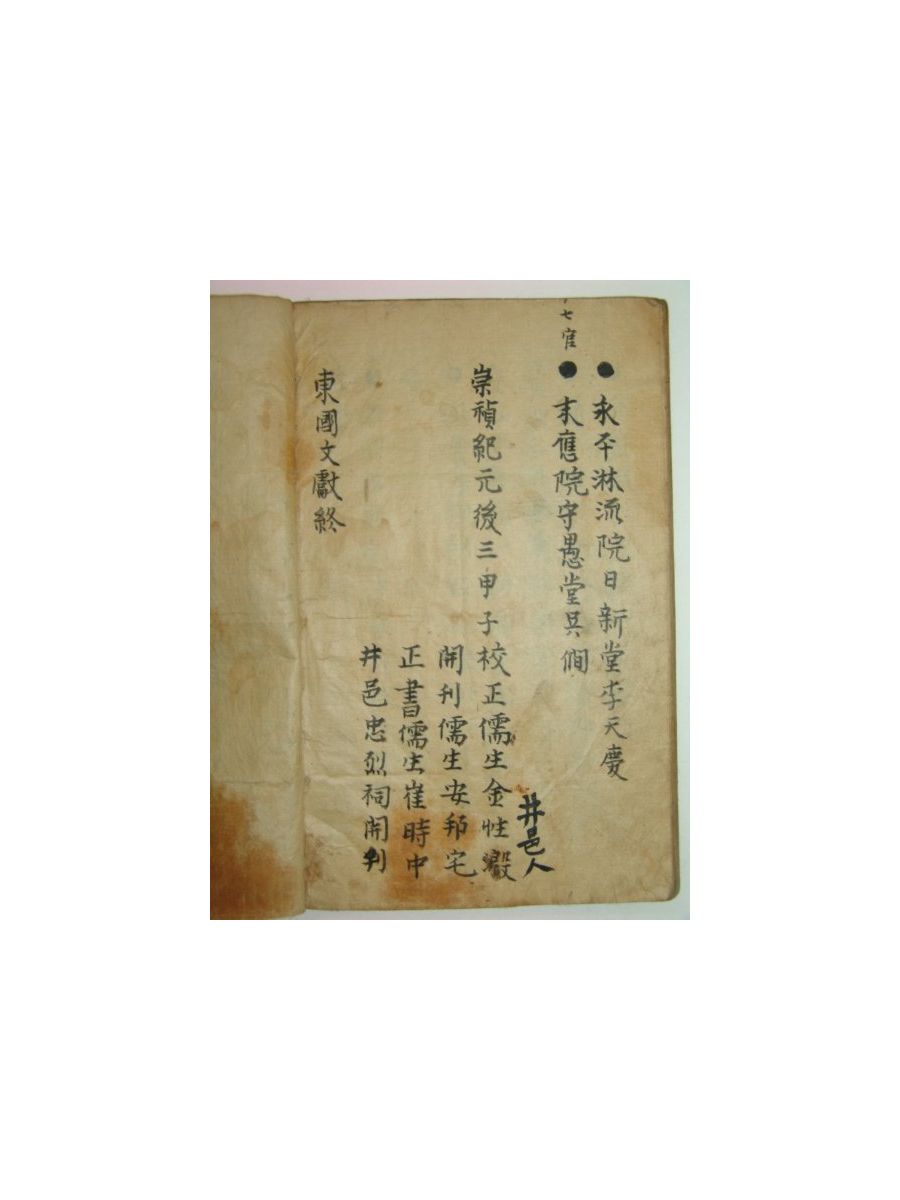 ●永平淋流院日新堂李天慶
七宦
●末應院守愚堂吳僩
井邑人
崇禎紀元後三甲子校正儒生金性溵
開刊儒生安邦宅
正書儒生崔時中
井邑忠烈祠開刊
東國文獻終